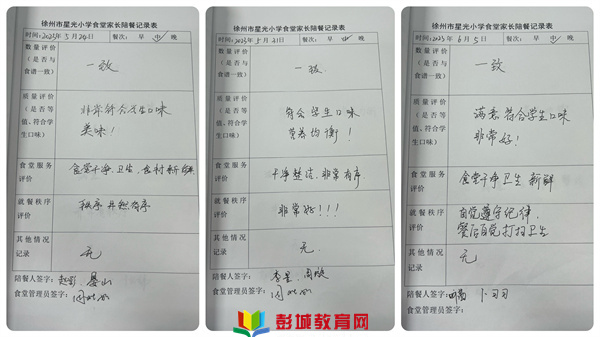 徐州市星光小学食堂家长陪餐记录表
时间:2023年5月24日 餐次: 早 中✓ 晚
数量评价
(是否与
食谱一致)
一致
质量评价
(是否等
值、符合学
生口味)
非常符合学生口味
美味!
食堂服务
评价
食堂干净卫生,食材新鲜
就餐秩序
评价
秩序井然有序
其他情况
记录
无
陪餐人签字:
食堂管理员签字:
徐州市星光小学食堂家长陪餐记录表
时间:2023年5月31日 餐次: 早 中✓ 晚
数量评价
(是否与
食谱一致)
一致
质量评价
(是否等
值、符合学
生口味)
符合学生口味
营养均衡!
食堂服务
评价
干净整洁,非常有序
就餐秩序
评价
非常好!!!
其他情况
记录
无
陪餐人签字:
食堂管理员签字:
徐州市星光小学食堂家长陪餐记录表
时间:2023年6月5日 餐次: 早 中✓ 晚
数量评价
(是否与
食谱一致)
一致
质量评价
(是否等
值、符合学
生口味)
满意 符合学生口味
非常好!
食堂服务
评价
食堂干净卫生 新鲜
就餐秩序
评价
自觉遵守纪律,
餐后自觉打扫卫生
其他情况
记录
无
陪餐人签字:
食堂管理员签字:
彭城教育网